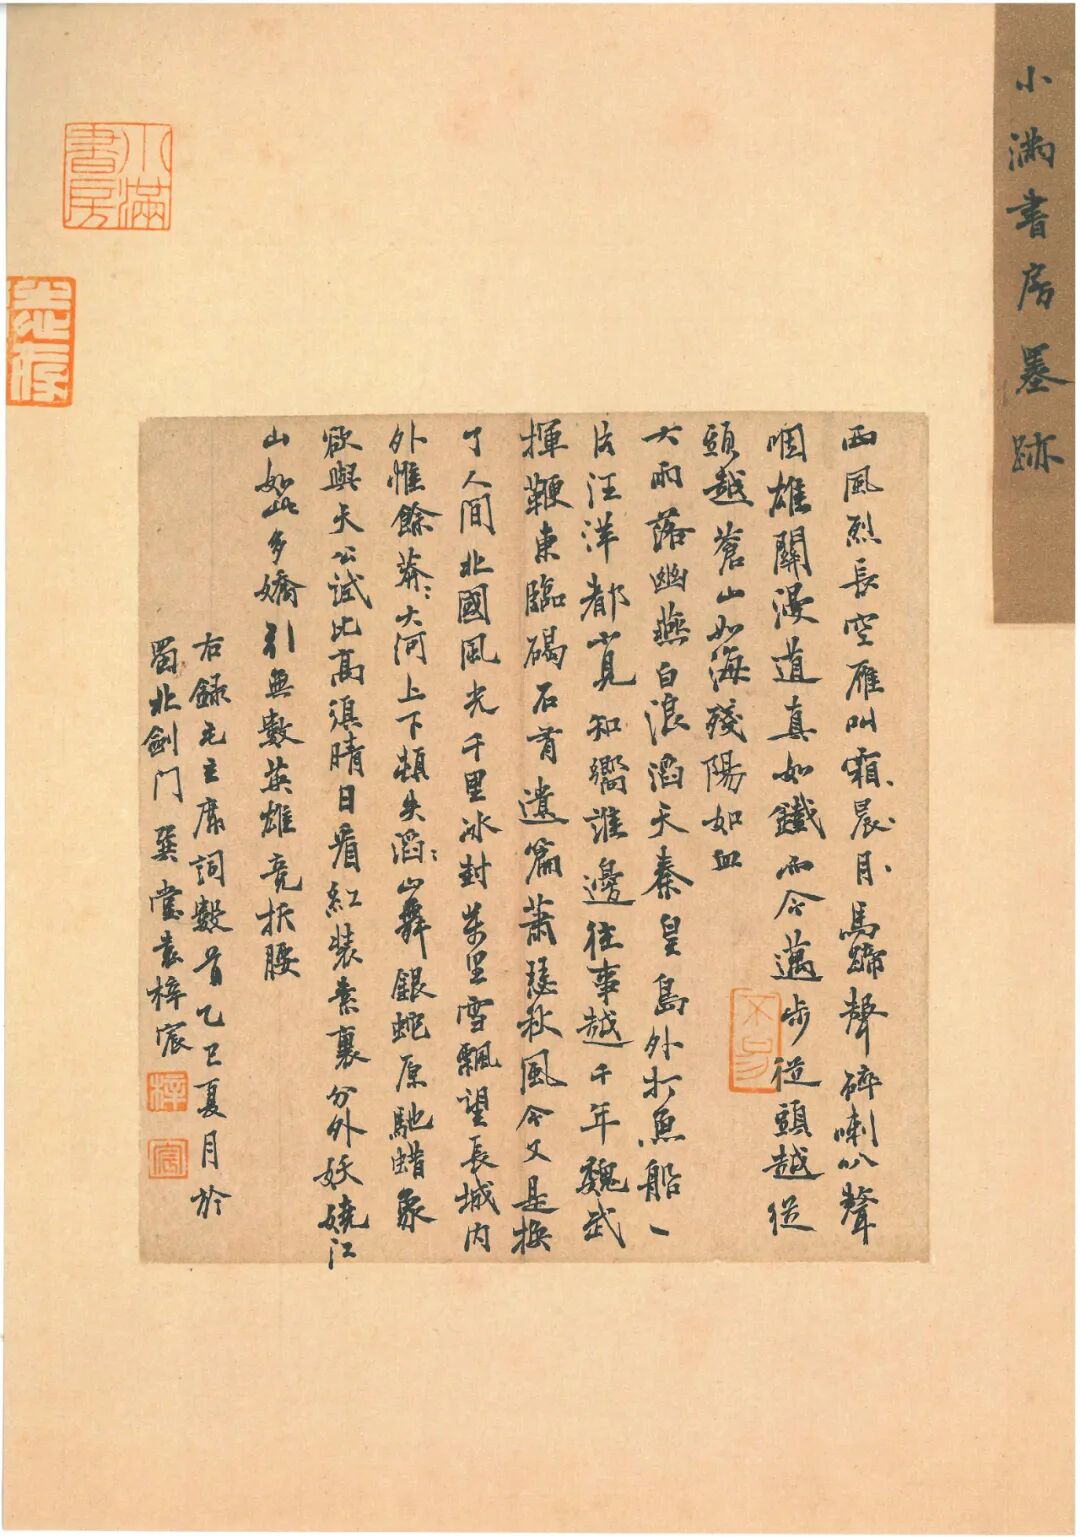 小滿書房墨跡
西風烈長空雁叫霜晨月馬蹄聲碎喇叭聲
咽雄關漫道真如鐵而今邁步從頭越從
頭越蒼山如海殘陽如血
大雨落幽燕白浪滔天秦皇島外打魚船一
片汪洋都不見知嚮誰邊往事越千年魏武
揮鞭東臨碣石有遺篇蕭瑟秋風今又是換
了人間北國風光千里冰封萬里雪飄望長城內
外惟餘莽:大河上下頓失滔:山舞銀蛇原馳蜡象
欲與天公試比高須晴日看紅裝素裹分外妖嬈江
山如此多嬌引無數英雄競折腰
右錄毛主席詞數首乙巳夏月於
蜀北劍门巽堂袁梓宸
梓
宸
小滿書房